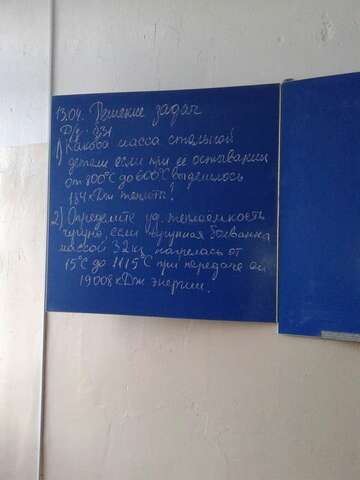 13.04. Решение задач
Д/з. 831
1) Какова масса стальной
детали если при ее остывании
от 800°С до 600°С выделилось
184 кДж теплоты?
2) Определите уд. теплоемкость
чугуна, если чугунная болванка
массой 32 кг нагрелась от
15°С до 1115°С при передаче ей
19008 кДж энергии.